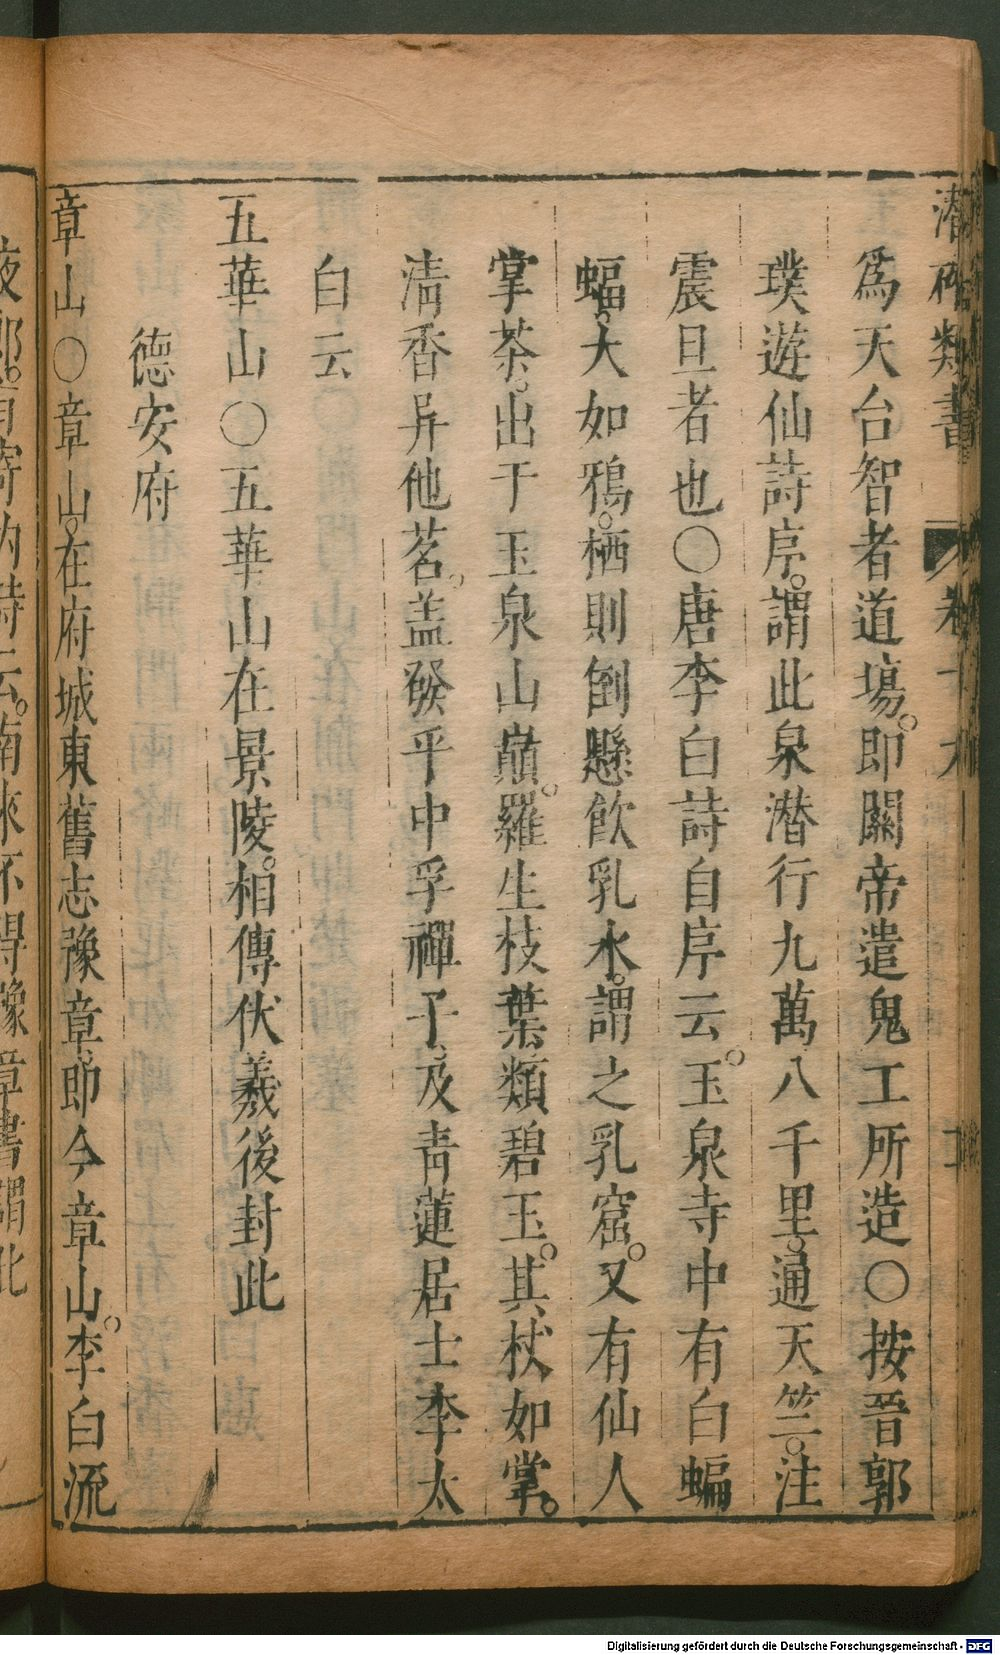 潛確類書 卷十六
爲天台智者道塲。即關帝遣鬼工所造〇按晉郭
璞遊仙詩序。謂此泉潛行九萬八千里。通天竺。注
震旦者也〇唐李白詩自序云。玉泉寺中有白蝙
蝠。大如鴉。栖則倒懸飲乳水。謂之乳窟。又有仙人
掌茶。出于玉泉山巔。羅生枝葉。類碧玉。其杖如掌。
清香异他茗。盖發平中孚禪子、及青蓮居士李太
白云
五華山〇五華山在景陵。相傳伏羲後封此
德安府
章山〇章山。在府城東舊志豫章即今章山。李白流
夜郎。有寄内詩云。南來不得豫章書謂此
Digitalisierung gefördert durch die Deutsche Forschungsgemeinschaft - DFG